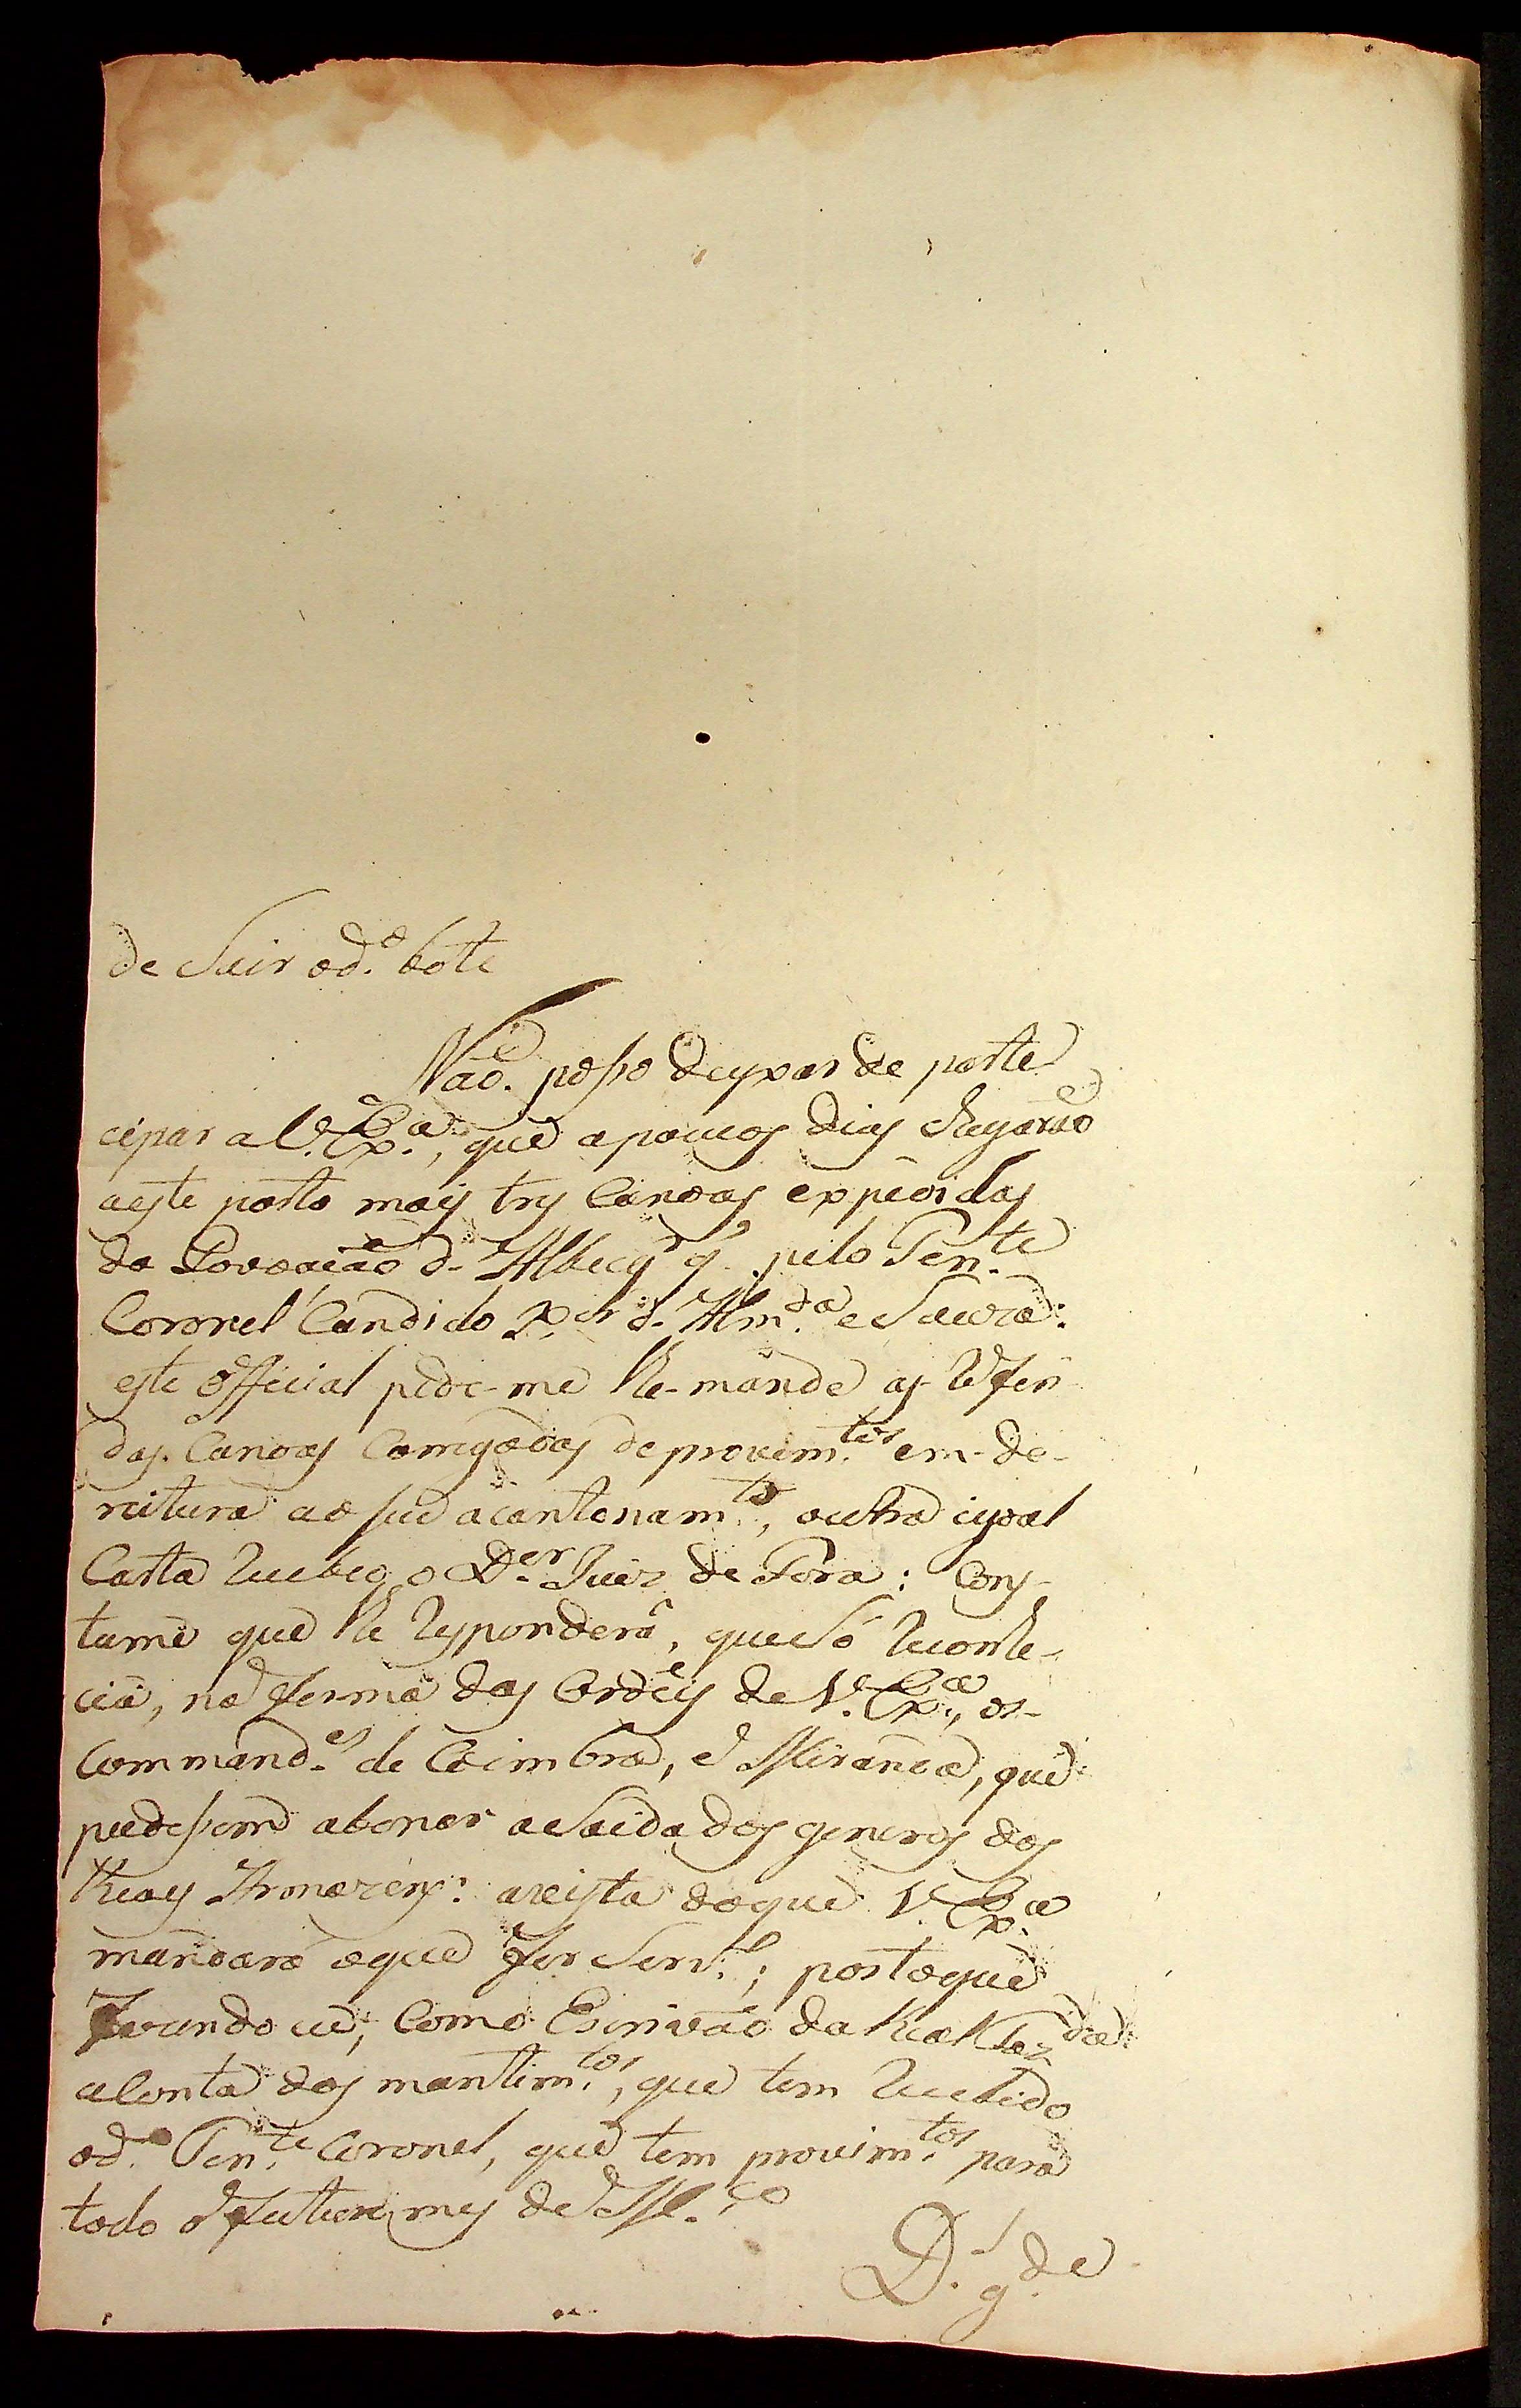 de Sair o d.o bote
Não posso deyxar de parte
cipar a V. Ex.a, que a poucos dias chegarão
a este porto mais tres Canoas expedidas
da Povoação d- Albuq.q.' pelo Ten.te
Coronel Candido X.er d- Alm.da e Souza:
este official pede-me lhe-mande as referi
das Canoas Carregadas de provim.tos em de-
reitura ao seu acantonam.to, outra igoal
Carta recebeo o D.or Juiz de Fora: Cons-
tame que lhe responderá, que só reconhe-
cia, na forma das Ordẽs de V. Ex.a, os
Command.es de Coimbra, e Miranda, que
pudessem abonar a Saida dos generos dos
Reays Armazens: a vista do que V. Ex.a
mandará o que for Serv.o; posto que
Levando eu, Como Escrivão da Real Faz.da
a Conta dos mantim.tos, que tem recebido
o d.o Ten.te Coronel, que tem provim.tos para
todo o futuro mes de M.ço
D.s g.de